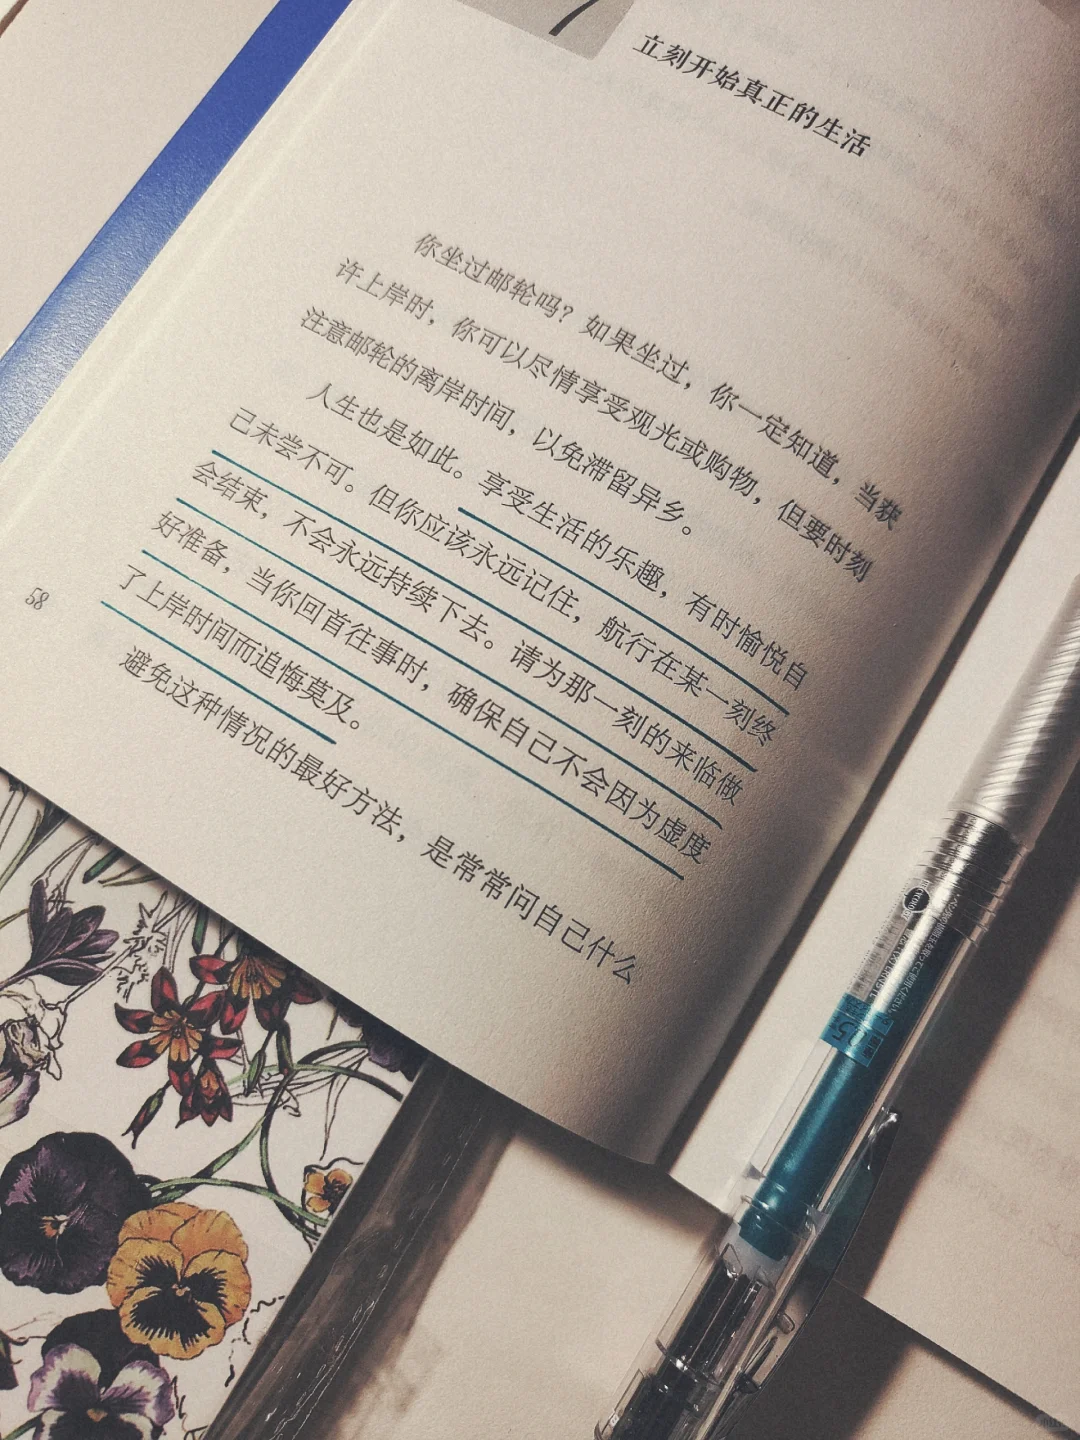 7
立刻开始真正的生活
你坐过邮轮吗？如果坐过，你一定知道，当获
许上岸时，你可以尽情享受观光或购物，但要时刻
注意邮轮的离岸时间，以免滞留异乡。
人生也是如此。享受生活的乐趣，有时愉悦自
己未尝不可。但你应该永远记住，航行在某一刻终
会结束，不会永远持续下去。请为那一刻的来临做
好准备，当你回首往事时，确保自己不会因为虚度
了上岸时间而追悔莫及。
避免这种情况的最好方法，是常常问自己什么
58